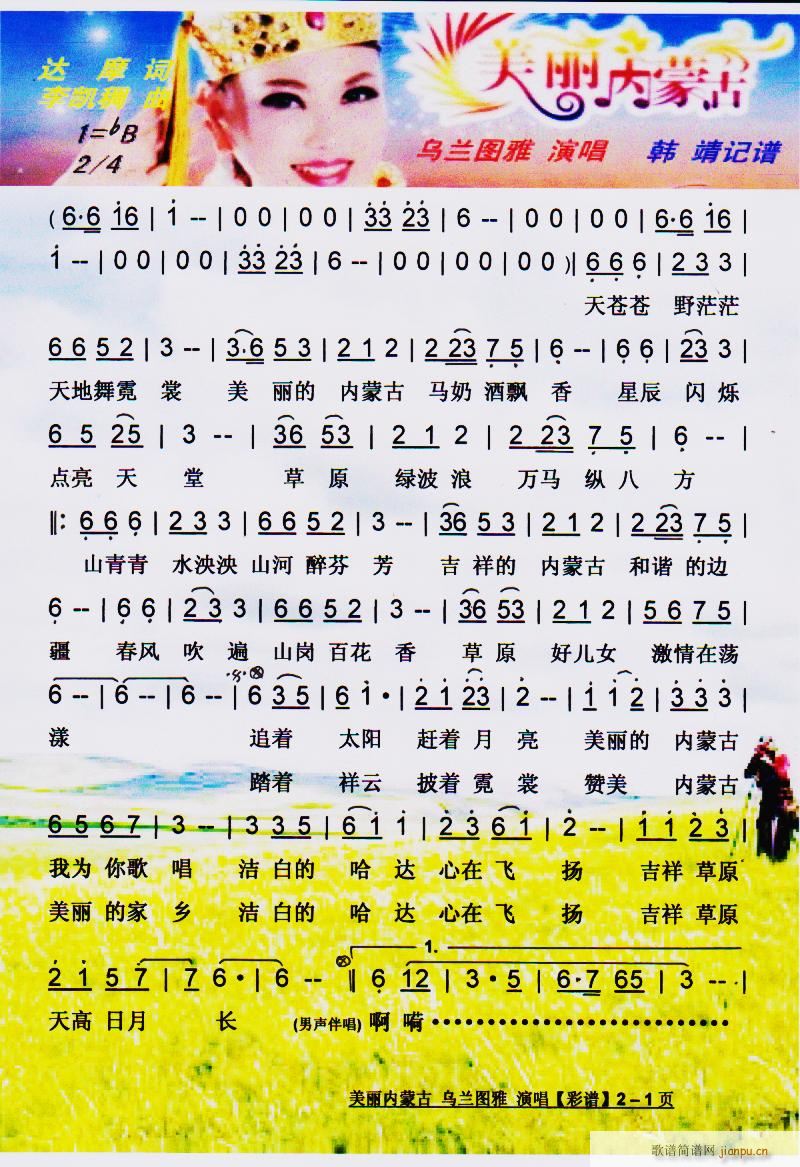 美丽内蒙古
达 摩 词
李凯稠 曲
1=♭B
2/4
乌兰图雅 演唱 韩 靖记谱
(6·6 16 | 1 -- | 0 0 | 0 0 | 33 23 | 6 -- | 0 0 | 0 0 | 6·6 16 |
1 -- | 0 0 | 0 0 | 33 23 | 6 -- | 0 0 | 0 0 | 0 0 )| 6 6 6 | 2 3 3 |
天苍苍 野茫茫
6 6 5 2 | 3 -- | 3·6 5 3 | 2 1 2 | 2 23 7 5 | 6 -- | 6 6 | 23 3 |
天地舞霓 裳 美 丽的 内蒙古 马奶 酒飘 香 星辰 闪烁
6 5 25 | 3 -- | 36 53 | 2 1 2 | 2 23 7 5 | 6 -- |
点亮 天 堂 草 原 绿波浪 万马 纵八 方
‖: 6 6 6 | 2 3 3 | 6 6 5 2 | 3 -- | 36 5 3 | 2 1 2 | 2 23 7 5 |
山青青 水泱泱 山河 醉芬 芳 吉 祥的 内蒙古 和谐 的边
6 -- | 6 6 | 23 3 | 6 6 5 2 | 3 -- | 36 53 | 2 1 2 | 5 6 7 5 |
疆 春风 吹 遍 山岗 百花 香 草 原 好儿女 激情在荡
6 -- | 6 -- | 6 -- | 6 35 | 6 1· | 2 1 23 | 2 -- | 1 1 2 | 3 3 3 |
漾 追着 太阳 赶着 月 亮 美丽的 内蒙古
踏着 祥云 披着 霓 裳 赞美 内蒙古
6 5 6 7 | 3 -- | 3 3 5 | 6 1 1 | 2 3 6 1 | 2 -- | 1 1 2 3 |
我为 你歌 唱 洁 白的 哈 达 心在 飞 扬 吉祥 草原
美丽 的家 乡 洁 白的 哈 达 心在 飞 扬 吉祥 草原
1.
2 1 5 7 | 7 6· | 6 -- ‖ 6 12 | 3· 5 | 6·7 65 | 3 -- |
天高 日月 长 (男声伴唱) 啊 嗬••••••••••••••••••••
美丽内蒙古 乌兰图雅 演唱【彩谱】2－1页
歌谱简谱网
jianpu.cn